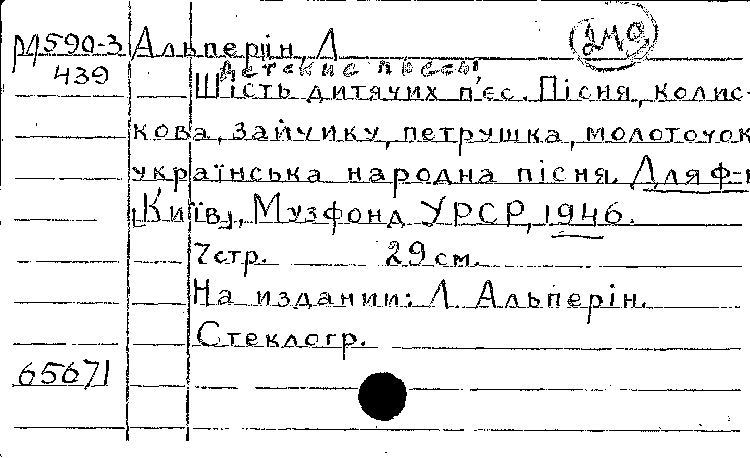 М590-3 Альперін Л
439 Детские пьесы
Шість дитячих п'єс. Пісня, колис-
кова, зайчику, петрушка, молоточок
українська народна пісня. Для ф-
[Київ], Музфонд УРСР, 1946.
7 стр. 29 см.
На издании: Л. Альперін.
Стеклогр.
65671